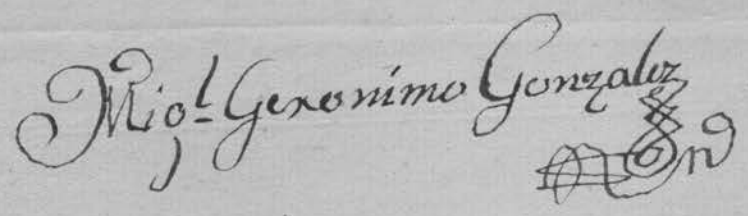 Migl. Geronimo Gonzalez